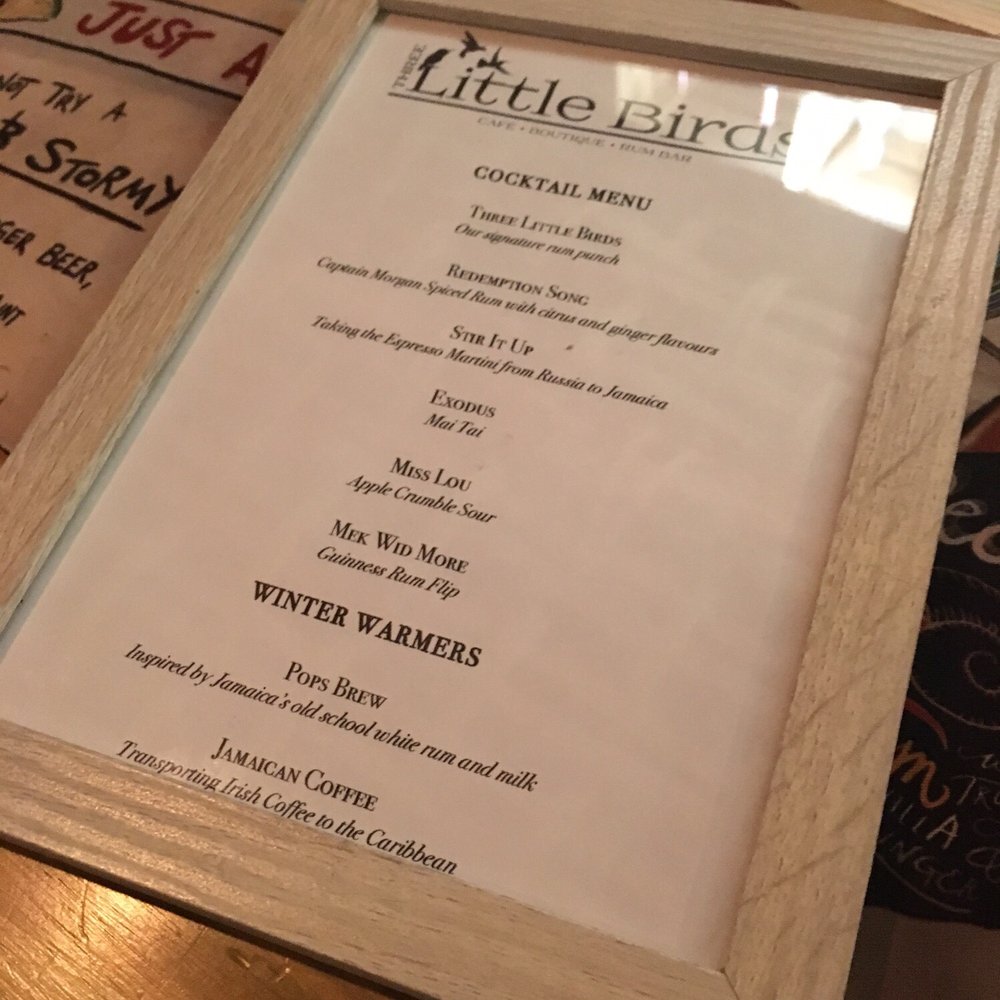 JUST A
NOT TRY A
& STORMY
GER BEER,
THREE
Little Birds
CAFÉ • BOUTIQUE • RUM BAR
COCKTAIL MENU
THREE LITTLE BIRDS
Our signature rum punch
REDEMPTION SONG
Captain Morgan Spiced Rum with citrus and ginger flavours
STIR IT UP
Taking the Espresso Martini from Russia to Jamaica
EXODUS
Mai Tai
MISS LOU
Apple Crumble Sour
MEK WID MORE
Guinness Rum Flip
WINTER WARMERS
POPS BREW
Inspired by Jamaica's old school white rum and milk
JAMAICAN COFFEE
Transporting Irish Coffee to the Caribbean